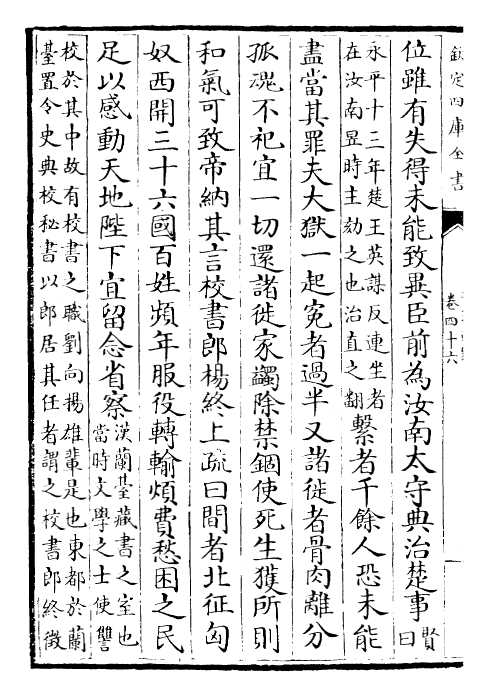 欽定四庫全書
卷四十六
位雖有失得未能致異臣前為汝南太守典治楚事賢
曰
永平十三年楚王英謀反連坐者
在汝南昱時主劾之也治直之翻
繫者千餘人恐未能
盡當其罪夫大獄一起寃者過半又諸徙者骨肉離分
孤魂不祀宜一切還諸徙家蠲除禁錮使死生獲所則
和氣可致帝納其言校書郎楊終上疏曰間者北征匈
奴西開三十六國百姓頻年服役轉輸煩費愁困之民
足以感動天地陛下宜留念省察
漢蘭臺藏書之室也
當時文學之士使讐
校於其中故有校書之職劉向揚雄輩是也東都於蘭
臺置令史典校秘書以郎居其任者謂之校書郎終徵